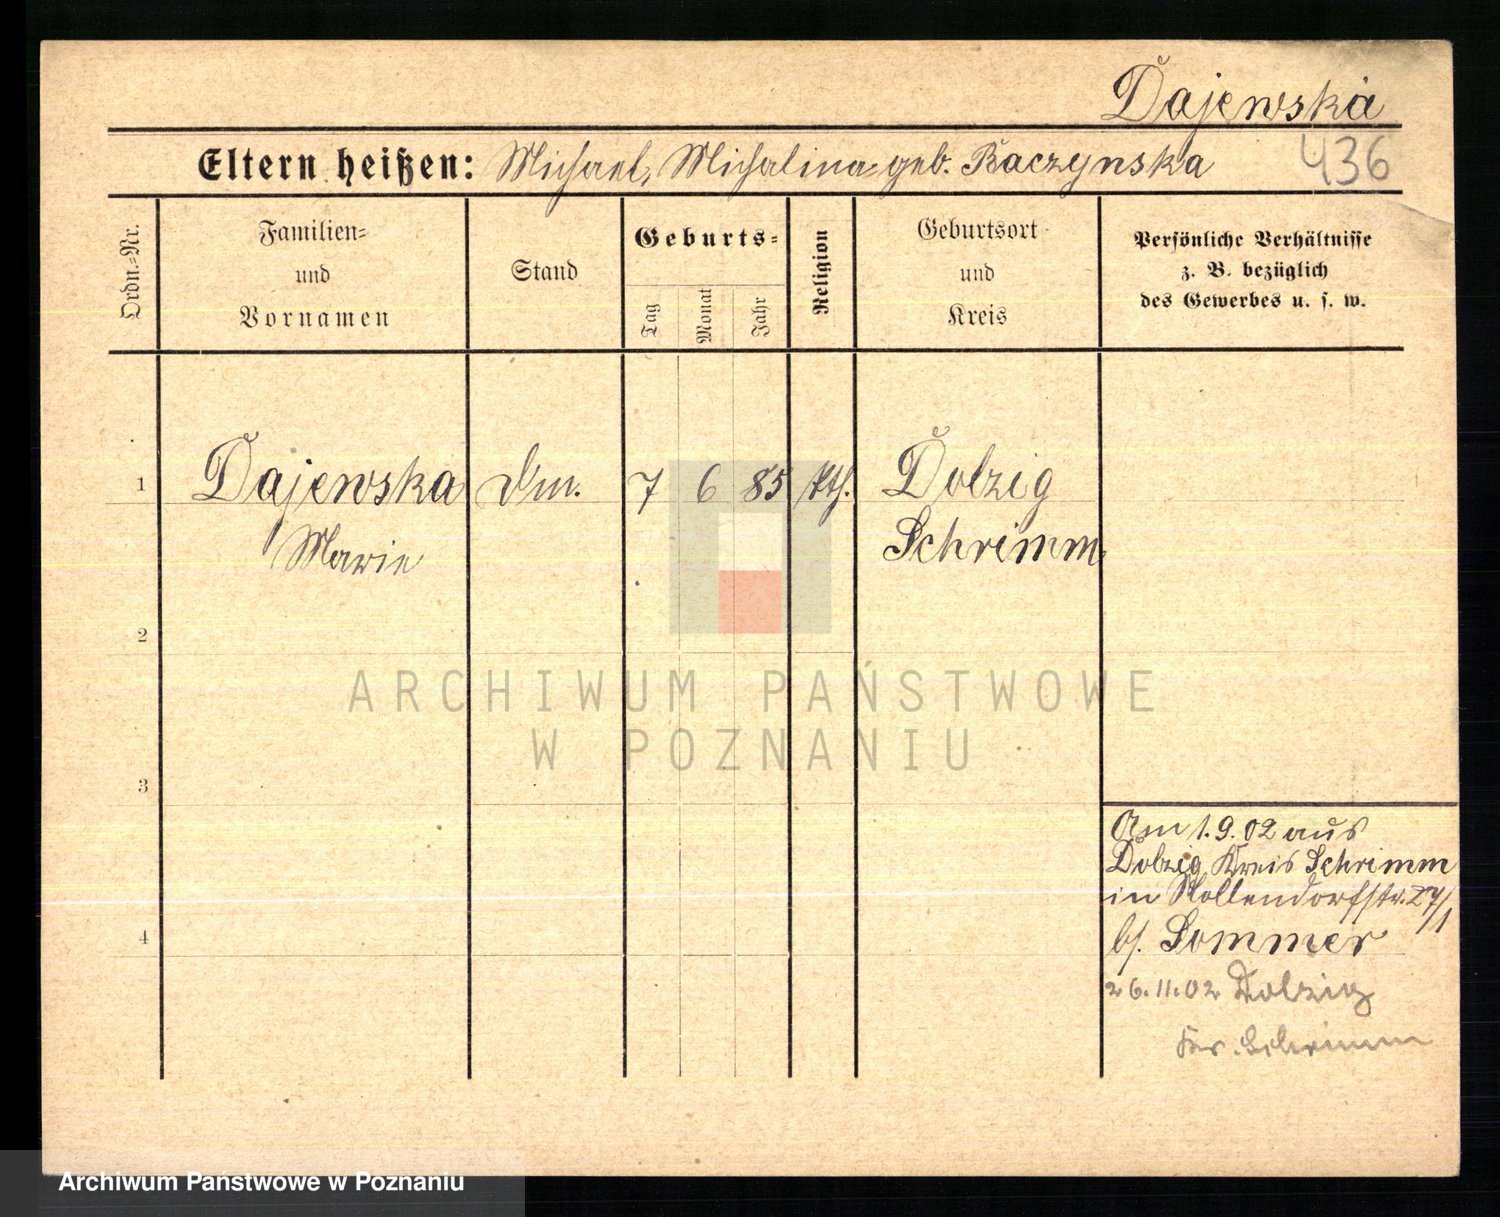 Dajewska
Eltern heißen: Michael, Michalina geb. Baczynska 436
Ordn.-Nr.
Familien-
und
Vornamen
Stand
Geburts-
Tag
Monat
Jahr
Religion
Geburtsort
und
Kreis
Persönliche Verhältnisse
z. B. bezüglich
des Gewerbes u. s. w.
1 Dajewska 7 6 85 kth. Dolzig
Marie Schrimm
2
3
4
Am 1.9.02 aus
Dolzig Kreis Schrimm
in Nollendorfstr. 27/1
b/. Sommer
26.11.02 Dolzig
Krs. Schrimm
ARCHIWUM PAŃSTWOWE
W POZNANIU
Archiwum Państwowe w Poznaniu